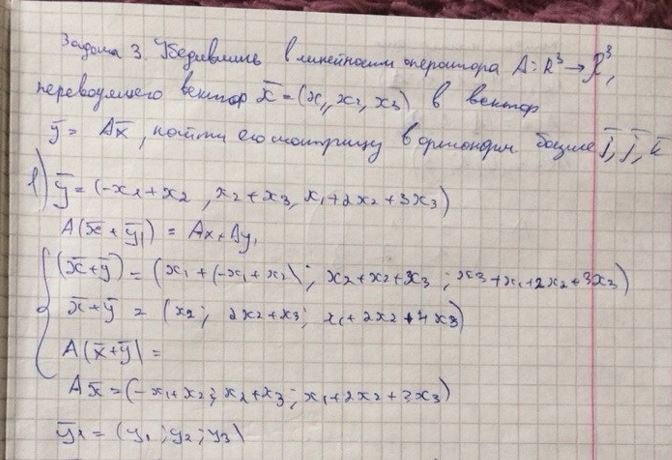 Задача 3. Убедившись в линейности оператора A: R³ → R³,
переводящего вектор x̄ = (x₁, x₂, x₃) в вектор
ȳ = Ax̄, найти его матрицу в ортонорм базисе i̅, j̅, k̅
1) ȳ = (-x₁+x₂, x₂+x₃, x₁+2x₂+3x₃)
A(x̄+ȳ₁) = Ax+Ay₁
(x̄+ȳ) = (x₁+(-x₁+x₂); x₂+x₂+x₃; x₃+x₁+2x₂+3x₃)
x̄+ȳ = (x₂; 2x₂+x₃; x₁+2x₂+4x₃)
A(x̄+ȳ) =
Ax̄ = (-x₁+x₂; x₂+x₃; x₁+2x₂+3x₃)
ȳ₁ = (y₁; y₂; y₃)